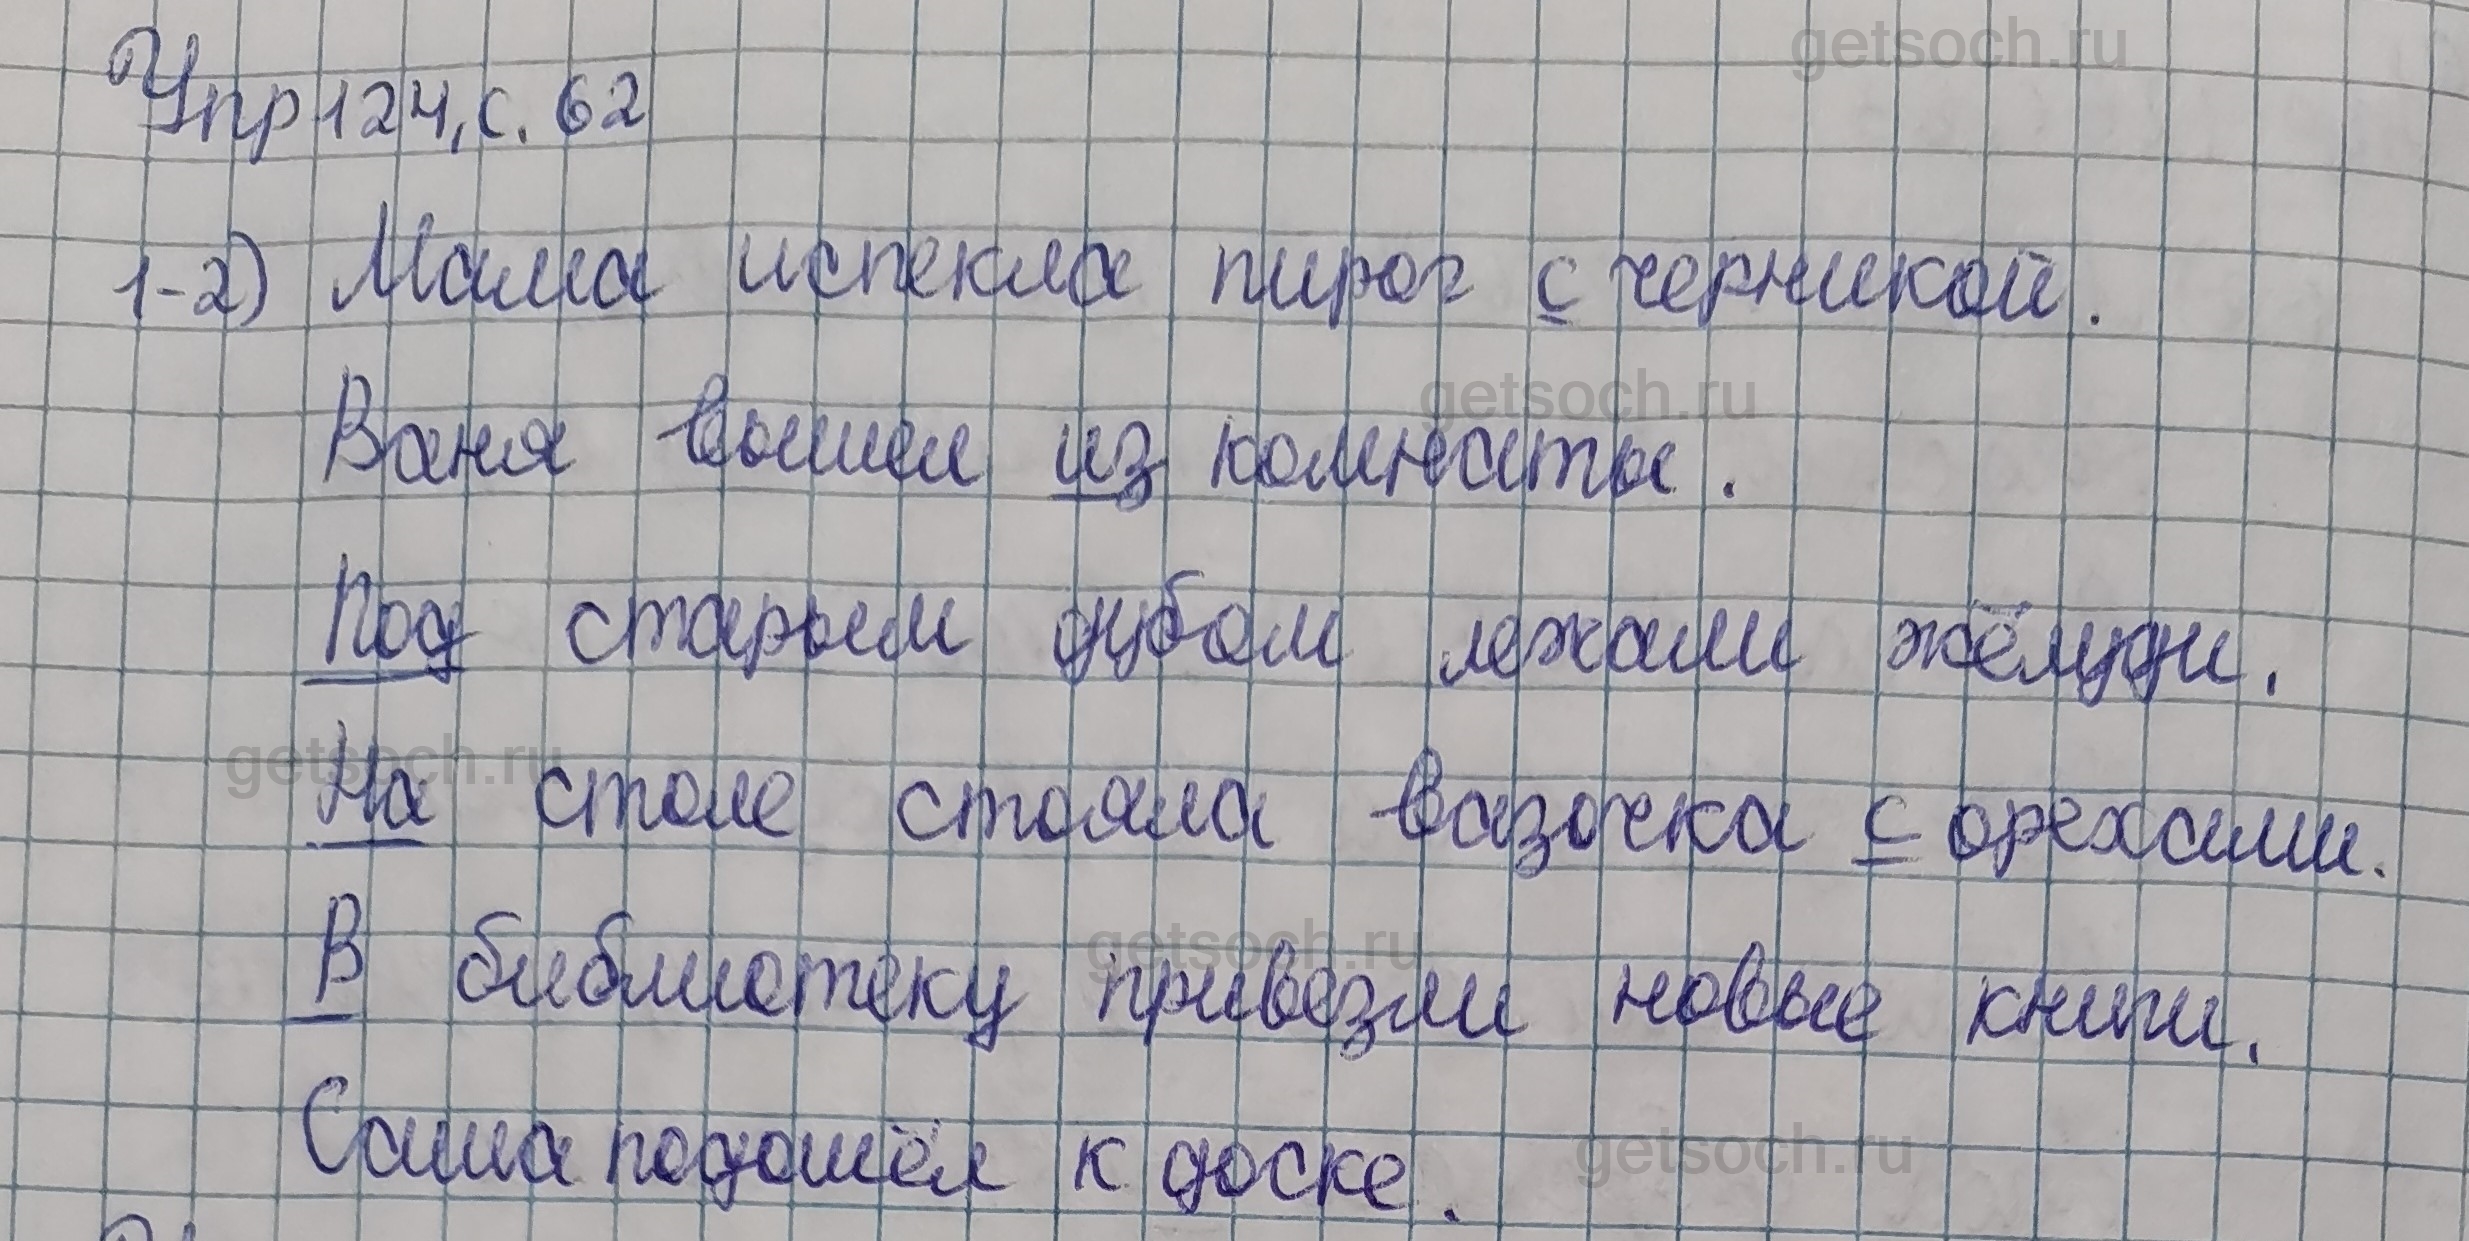 getsoch.ru
Упр 124, с. 62
1-2) Мама испекла пирог с черникой.
getsoch.ru
Ваня вышел из комнаты.
Под старым дубом лежали жёлуди.
getsoch.ru
На столе стояла вазочка с орехами.
getsoch.ru
В библиотеку привезли новые книги.
Саша подошёл к доске.
getsoch.ru